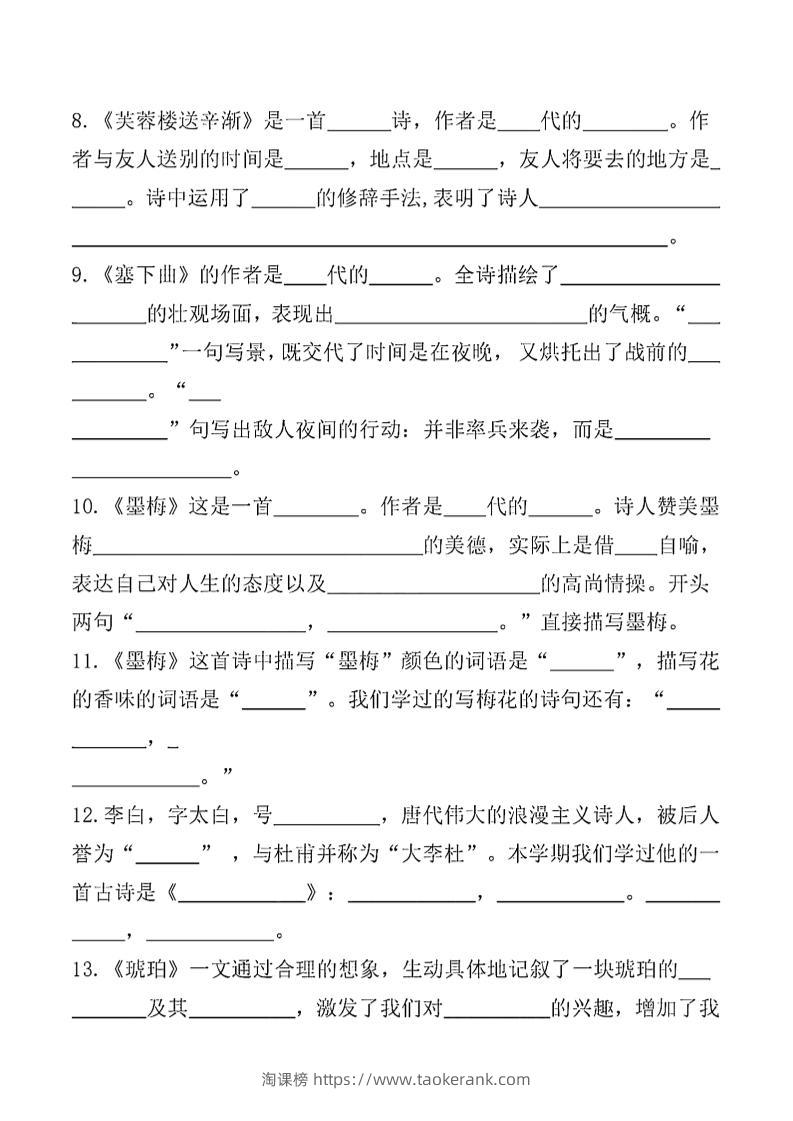 8.《芙蓉楼送辛渐》是一首______诗，作者是____代的________。作
者与友人送别的时间是______，地点是______，友人将要去的地方是_
_____。诗中运用了______的修辞手法,表明了诗人_________________
________________________________________________________。
9.《塞下曲》的作者是____代的______。全诗描绘了_______________
_______的壮观场面，表现出________________________的气概。“___
_________”一句写景，既交代了时间是在夜晚， 又烘托出了战前的___
_______。“___
_________”句写出敌人夜间的行动：并非率兵来袭，而是_________
_______________。
10.《墨梅》这是一首________。作者是____代的______。诗人赞美墨
梅_______________________________的美德，实际上是借____自喻，
表达自己对人生的态度以及____________________的高尚情操。开头
两句“________________，________________。”直接描写墨梅。
11.《墨梅》这首诗中描写“墨梅”颜色的词语是“______”，描写花
的香味的词语是“______”。我们学过的写梅花的诗句还有：“_____
_______，_
____________。”
12.李白，字太白，号__________，唐代伟大的浪漫主义诗人，被后人
誉为“______” ，与杜甫并称为“大李杜”。本学期我们学过他的一
首古诗是《____________》：____________，____________。_______
_____，____________。
13.《琥珀》一文通过合理的想象，生动具体地记叙了一块琥珀的___
_______及其__________，激发了我们对__________的兴趣，增加了我
淘课榜 https://www.taokerank.com